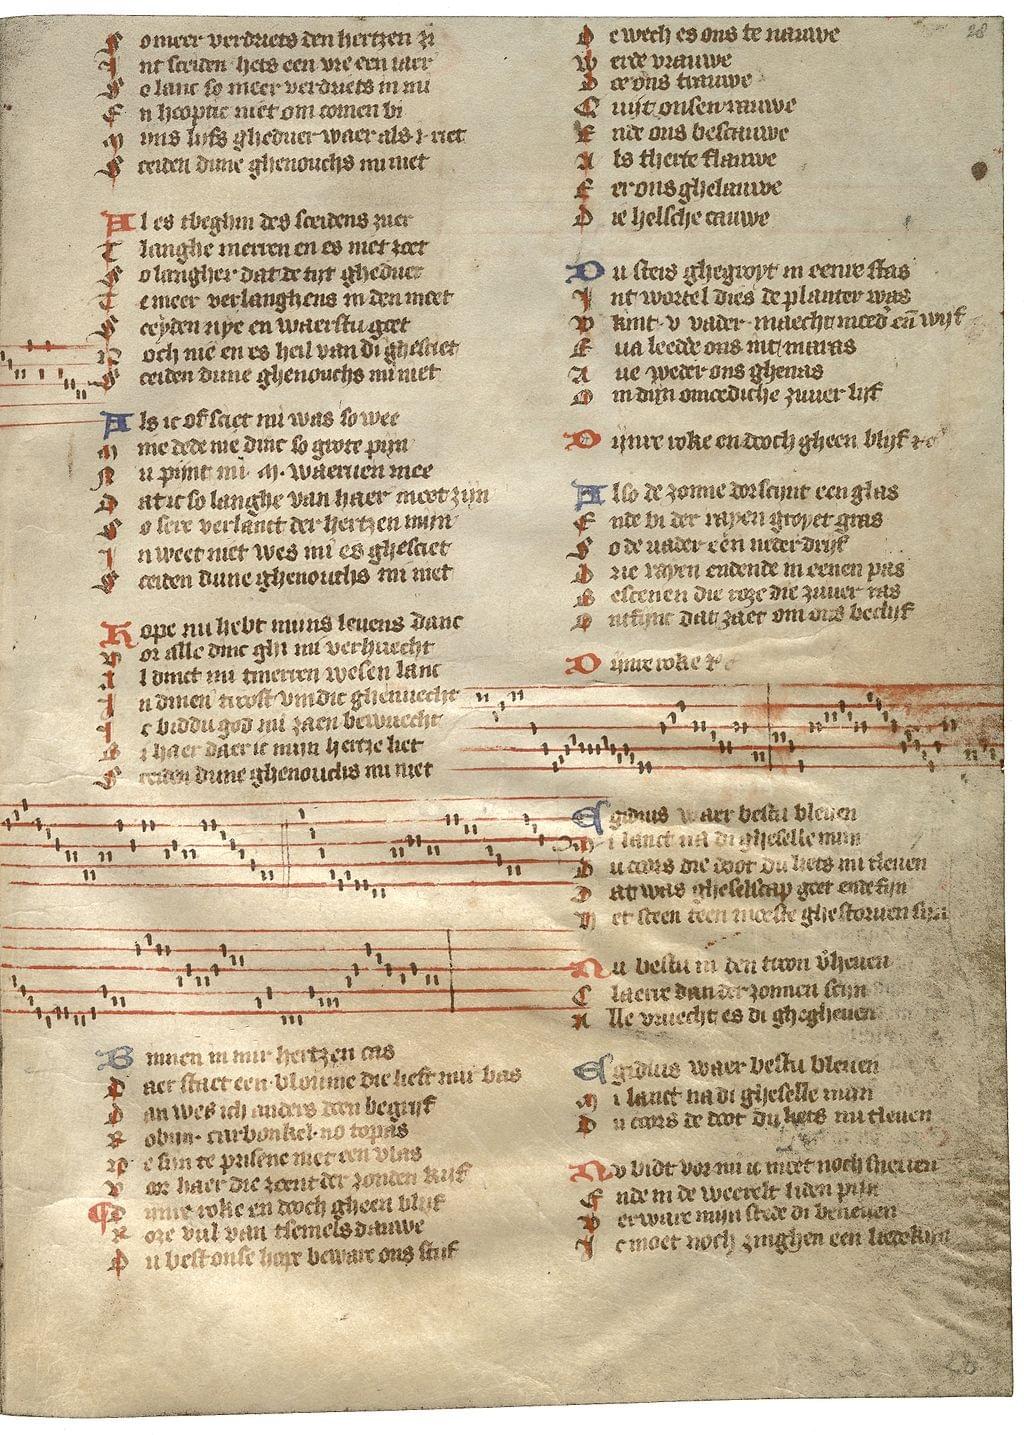 So meer verdriets den hertzen zi
Int sceiden hets een vre een iaer
So lanc so meer verdriets in mi
En hoopic niet om comen bi
Mijns lijfs gheduer waer als i riet
Sceiden dune ghenouchs mi niet
Al es tbeghin des sceidens zuer
Tlanghe merren en es niet zoet
So langher dat de tijt gheduer
Te meer verlanghens in den moet
Sceyden nye en waerstu goet
Noch nie en es heil van di ghesciet
Sceiden dune ghenouchs mi niet
Als ic of sciet mi was so wee
Mine dede nie dinc so grote pijn
Nu pijnt mi .M. waeruen mee
Dat ic so langhe van haer moet zijn
So sere verlanct der hertzen mijn
In weet niet wes mi es ghesciet
Sceiden dune ghenouchs mi niet
Hope nu hebt mijns leuens danc
Vor alle dinc ghi mi verhuecht
Al dinct mi tmerren wesen lanc
In dinen troost vindic ghenuecht
Ic biddu god mi zaen bewuecht
Bi haer daer ic mijn hertze liet
Sceiden dune ghenouchs mi niet
Binnen in mijr hertzen cas
Daer staet een bloume die lieft mir bas
Dan wes ich anders doen begrijf
Robijn carbonkel no topas
Ne sijn te prisene niet een vlas
Vor haer die zoent der zonden kijf
Dijnre roke en doch gheen blijf
Roze vul van tsemels dauwe
Du best onse hope beware ons stijf
De wech es ons te nauwe
Werde vrauwe
Doe ons trauwe
Quijt onsen rauwe
Ende ons bescauwe
Als therte flauwe
Eer ons ghelauwe
Die helsche cauwe
Du steis ghegroyt in eenre stas
Int wortel dies de planter was
Kint v vader maecht moed' en wijf
Eua leedde ons nit maras
Aue weder ons ghenas
In dijn omoediche zuuer lijf
Dijnre roke en doch gheen blijf &c
Also de zonne dorscijnt een glas
Ende bi der rayen groyet gras
So de vader een neder drijf
Drie rayen endende in eenen pas
Bescenen die roze die zuuer was
Ontfinc dat zaet om ons beclijf
Dijnre roke &c
Egidius waer bestu bleuen
Mi lanct na di gheselle mijn
Du coors die doot du liets mi tleuen
Dat was gheselscap goet ende fijn
Het sceen teen moeste ghestoruen sijn
Nu bestu in den troon verheuen
Claerre dan der zonnen scijn
Alle vruecht es di ghegheuen
Egidius waer bestu bleuen
Mi lanct na di gheselle mijn
Du coors de doot du liets mi tleuen
Nv bidt vor mi ic moet noch sneuen
Ende in de weerelt liden pijn
Verware mijn stede di beneuen
Ic moet noch zinghen een liedekijn
28
28